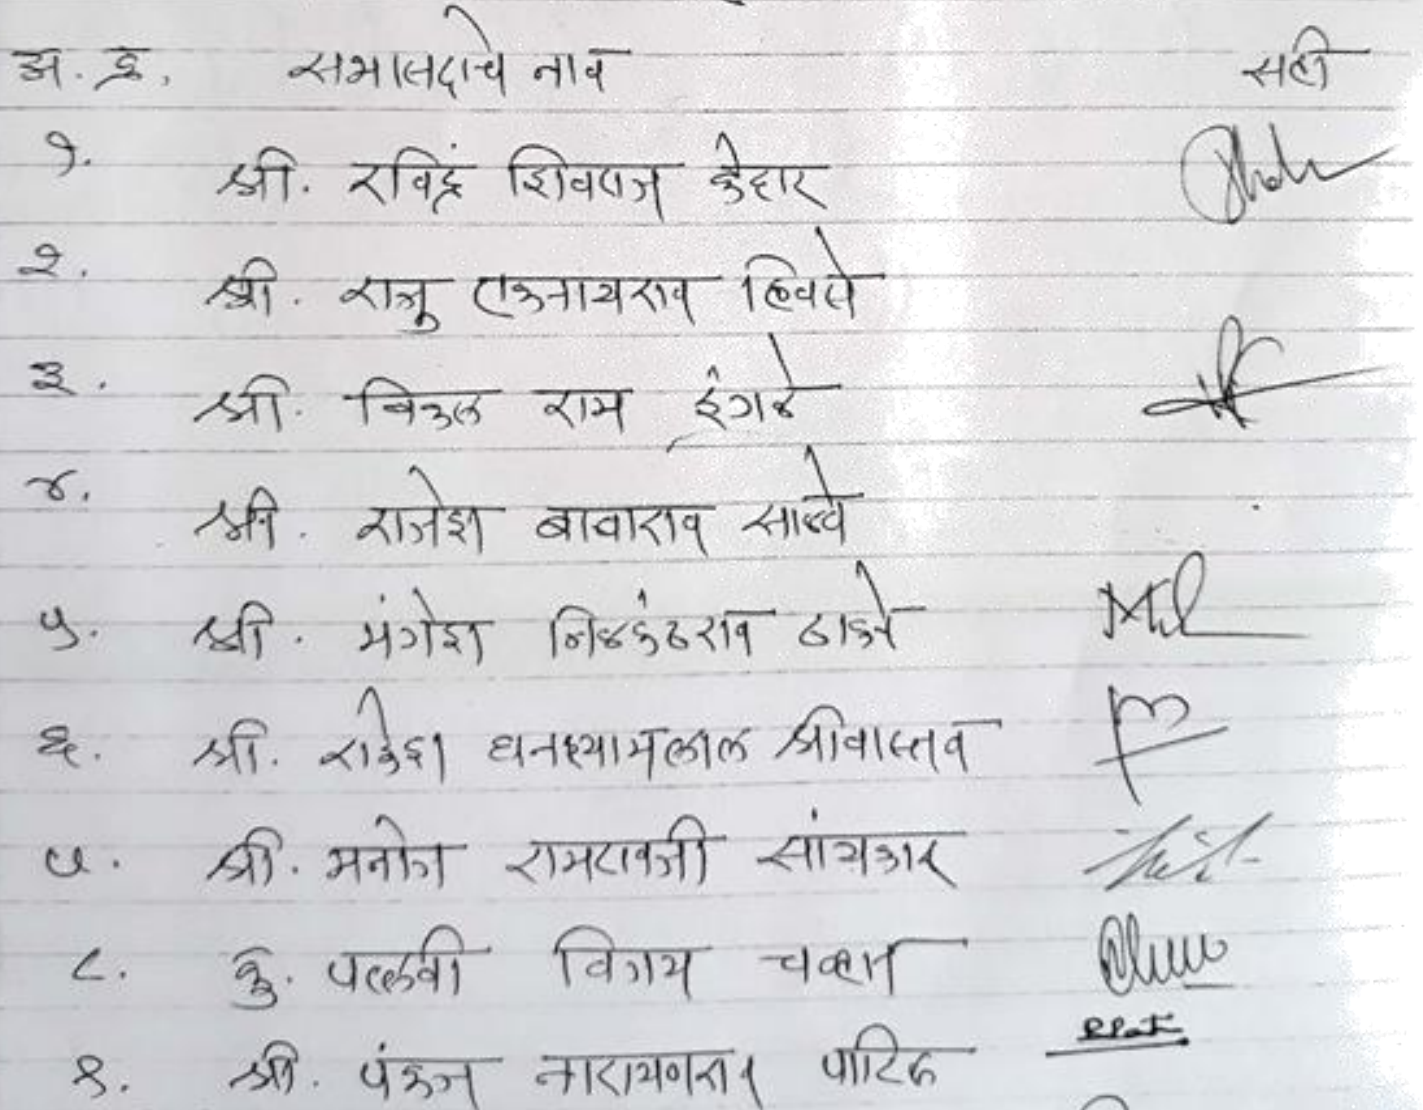 अ. क्र. सभासदाचे नाव सही
१. श्री. रविंद्र शिवराज केदार
२. श्री. राजु एकनाथराव हिवसे
३. श्री. विठ्ठल राम इंगळे
४. श्री. राजेश बावाराव साळवे
५. श्री. मंगेश निळकंठराव ठाकरे
६. श्री. राकेश घनश्यामलाल श्रीवास्तव
७. श्री. मनोज रामरावजी
८. कु. पल्लवी विजय चव्हाण
९. श्री. पंकज नारायणराव पाटिल